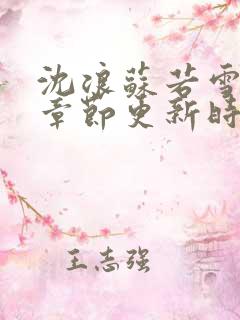 沈浪蘇若雪
章節更新時
王志强